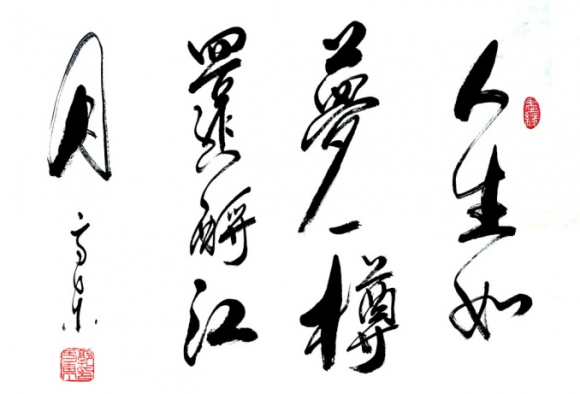 人生如
夢一樽
還酹江
月